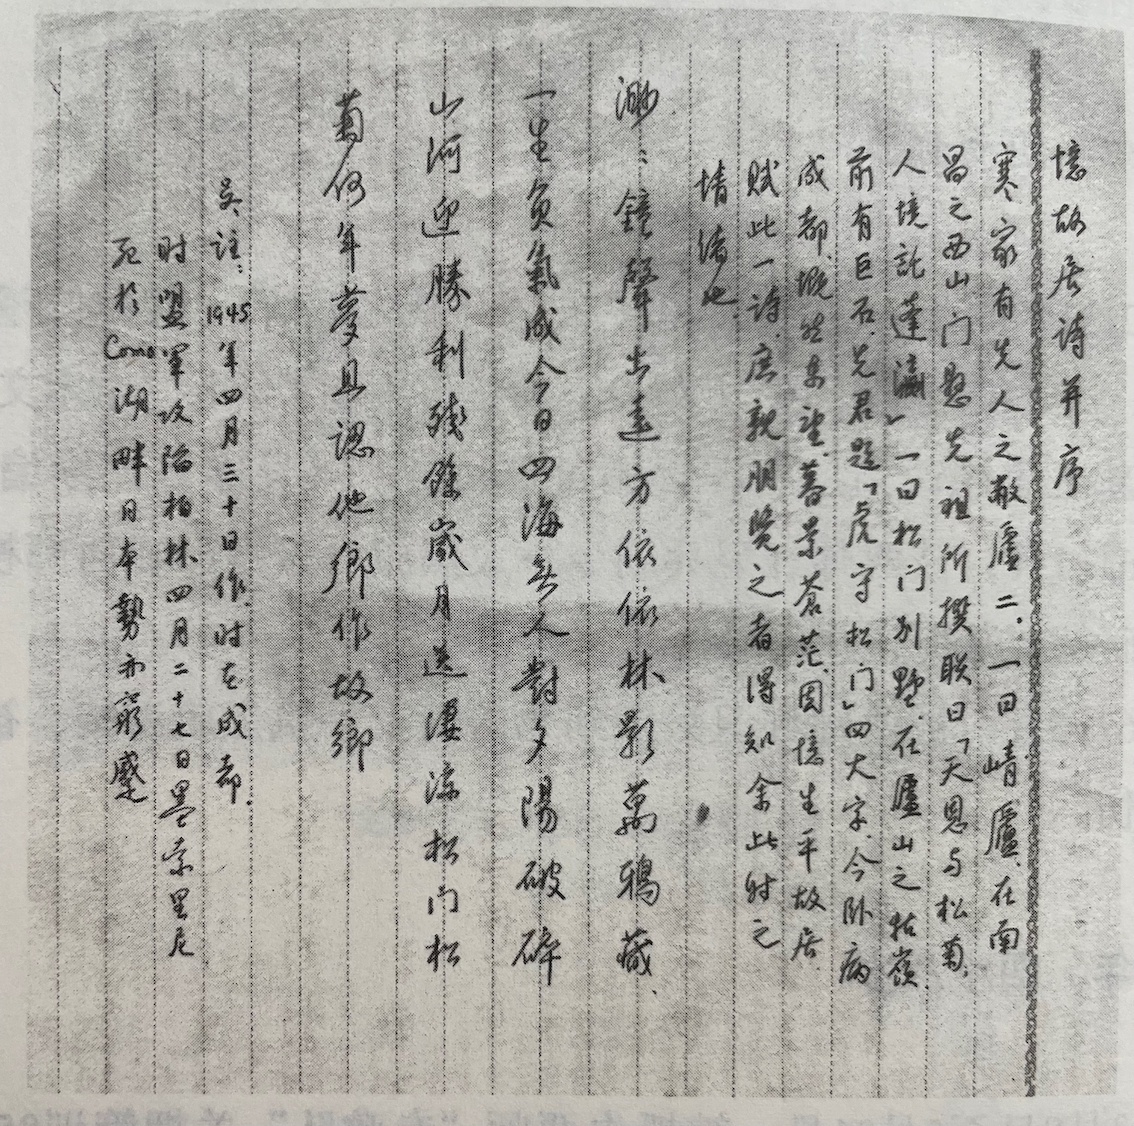 憶故居诗并序
寒家有先人之敝廬二.一曰崝廬.在南
昌之西山门懸先祖所撰联曰「天恩与松菊.
人境託蓬瀛」一曰松门别墅.在廬山之牯嶺.
前有巨石.先君题「虎守松门」四大字.今卧病
成都.慨然东望.暮景苍茫.因憶生平故居
赋此一诗.庶親朋览之者得知余此时之
情绪也.
渺﹕鐘聲出遠方依依林影萬鴉藏.
一生负氣成今日四海无人對夕陽破碎
山河迎勝利殘餘歲月送凄凉松门松
菊何年夢且認他鄉作故鄉
吴註:1945年四月三十日作.时在成都.
时盟军攻陷柏林四月二十七日墨索里尼
死於Como湖畔日本勢亦窮蹙